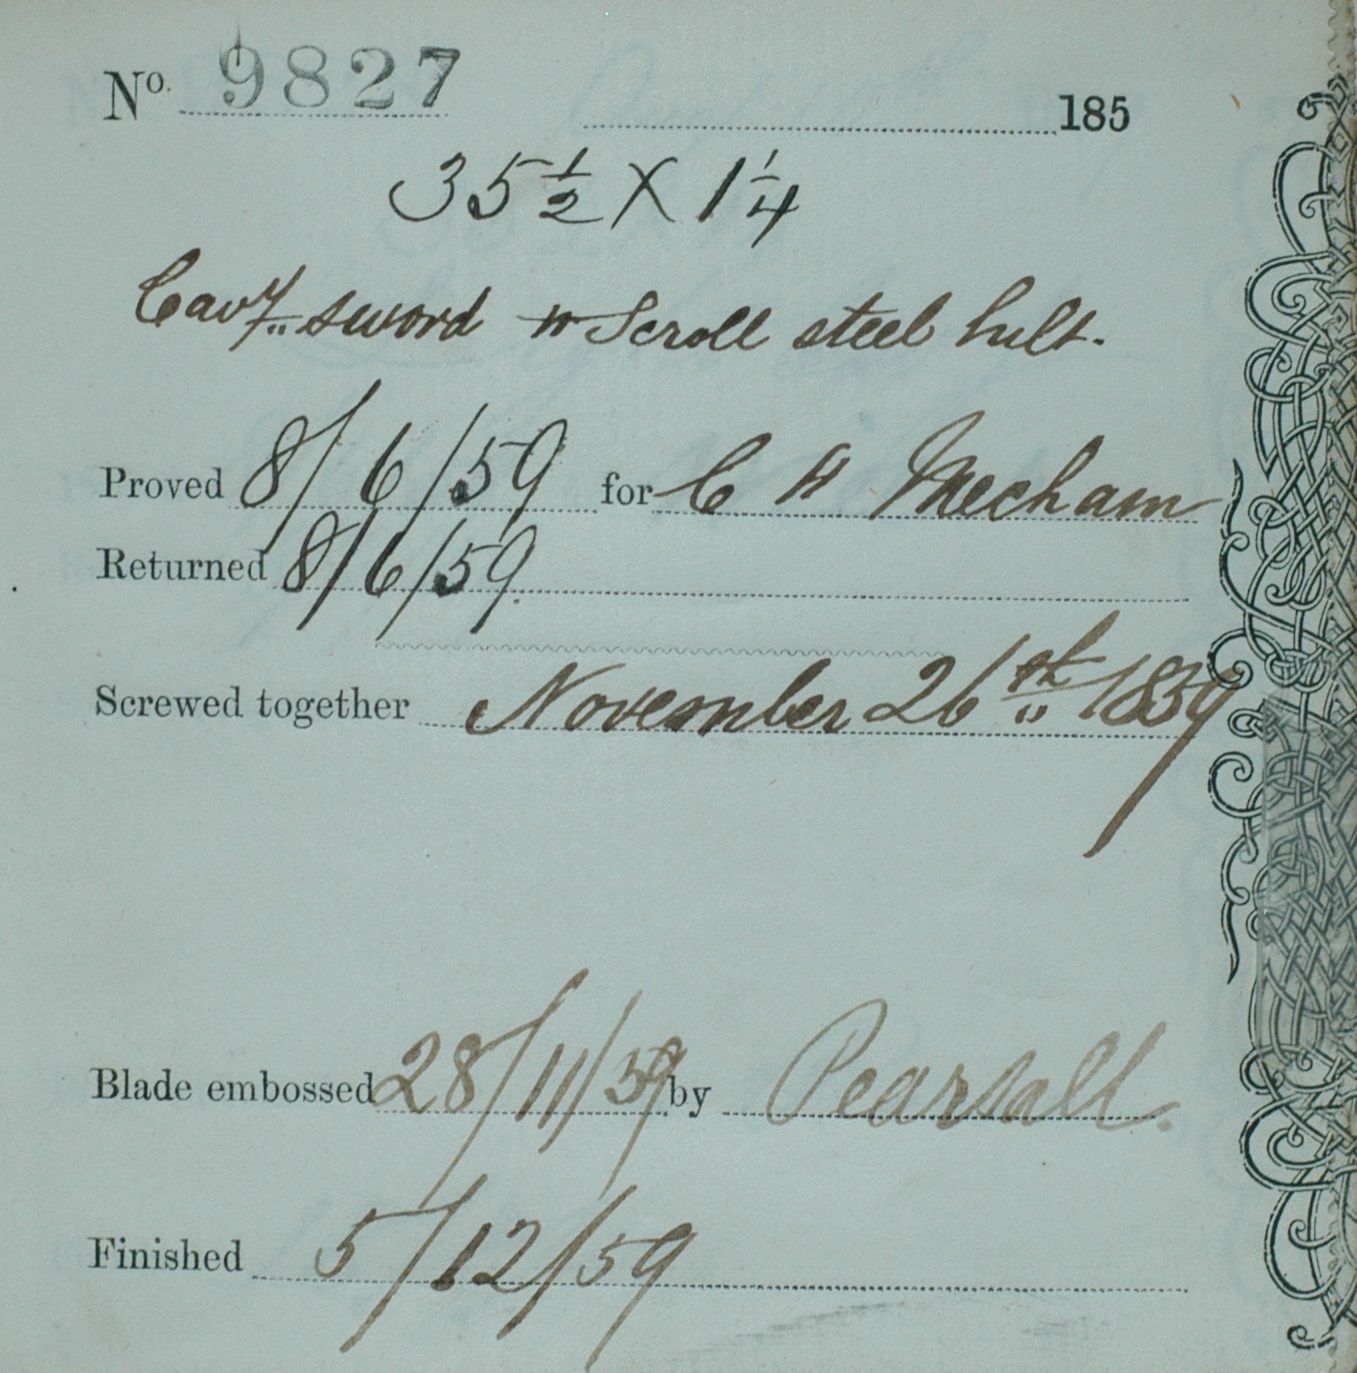 No. 9827 185
35 1/2 X 1 1/4
Cavy sword w Scroll steel hilt.
Proved 8/6/59 for C H Mecham
Returned 8/6/59.
Screwed together November 26th 1859
Blade embossed 28/11/59 by Pearsall.
Finished 5/12/59